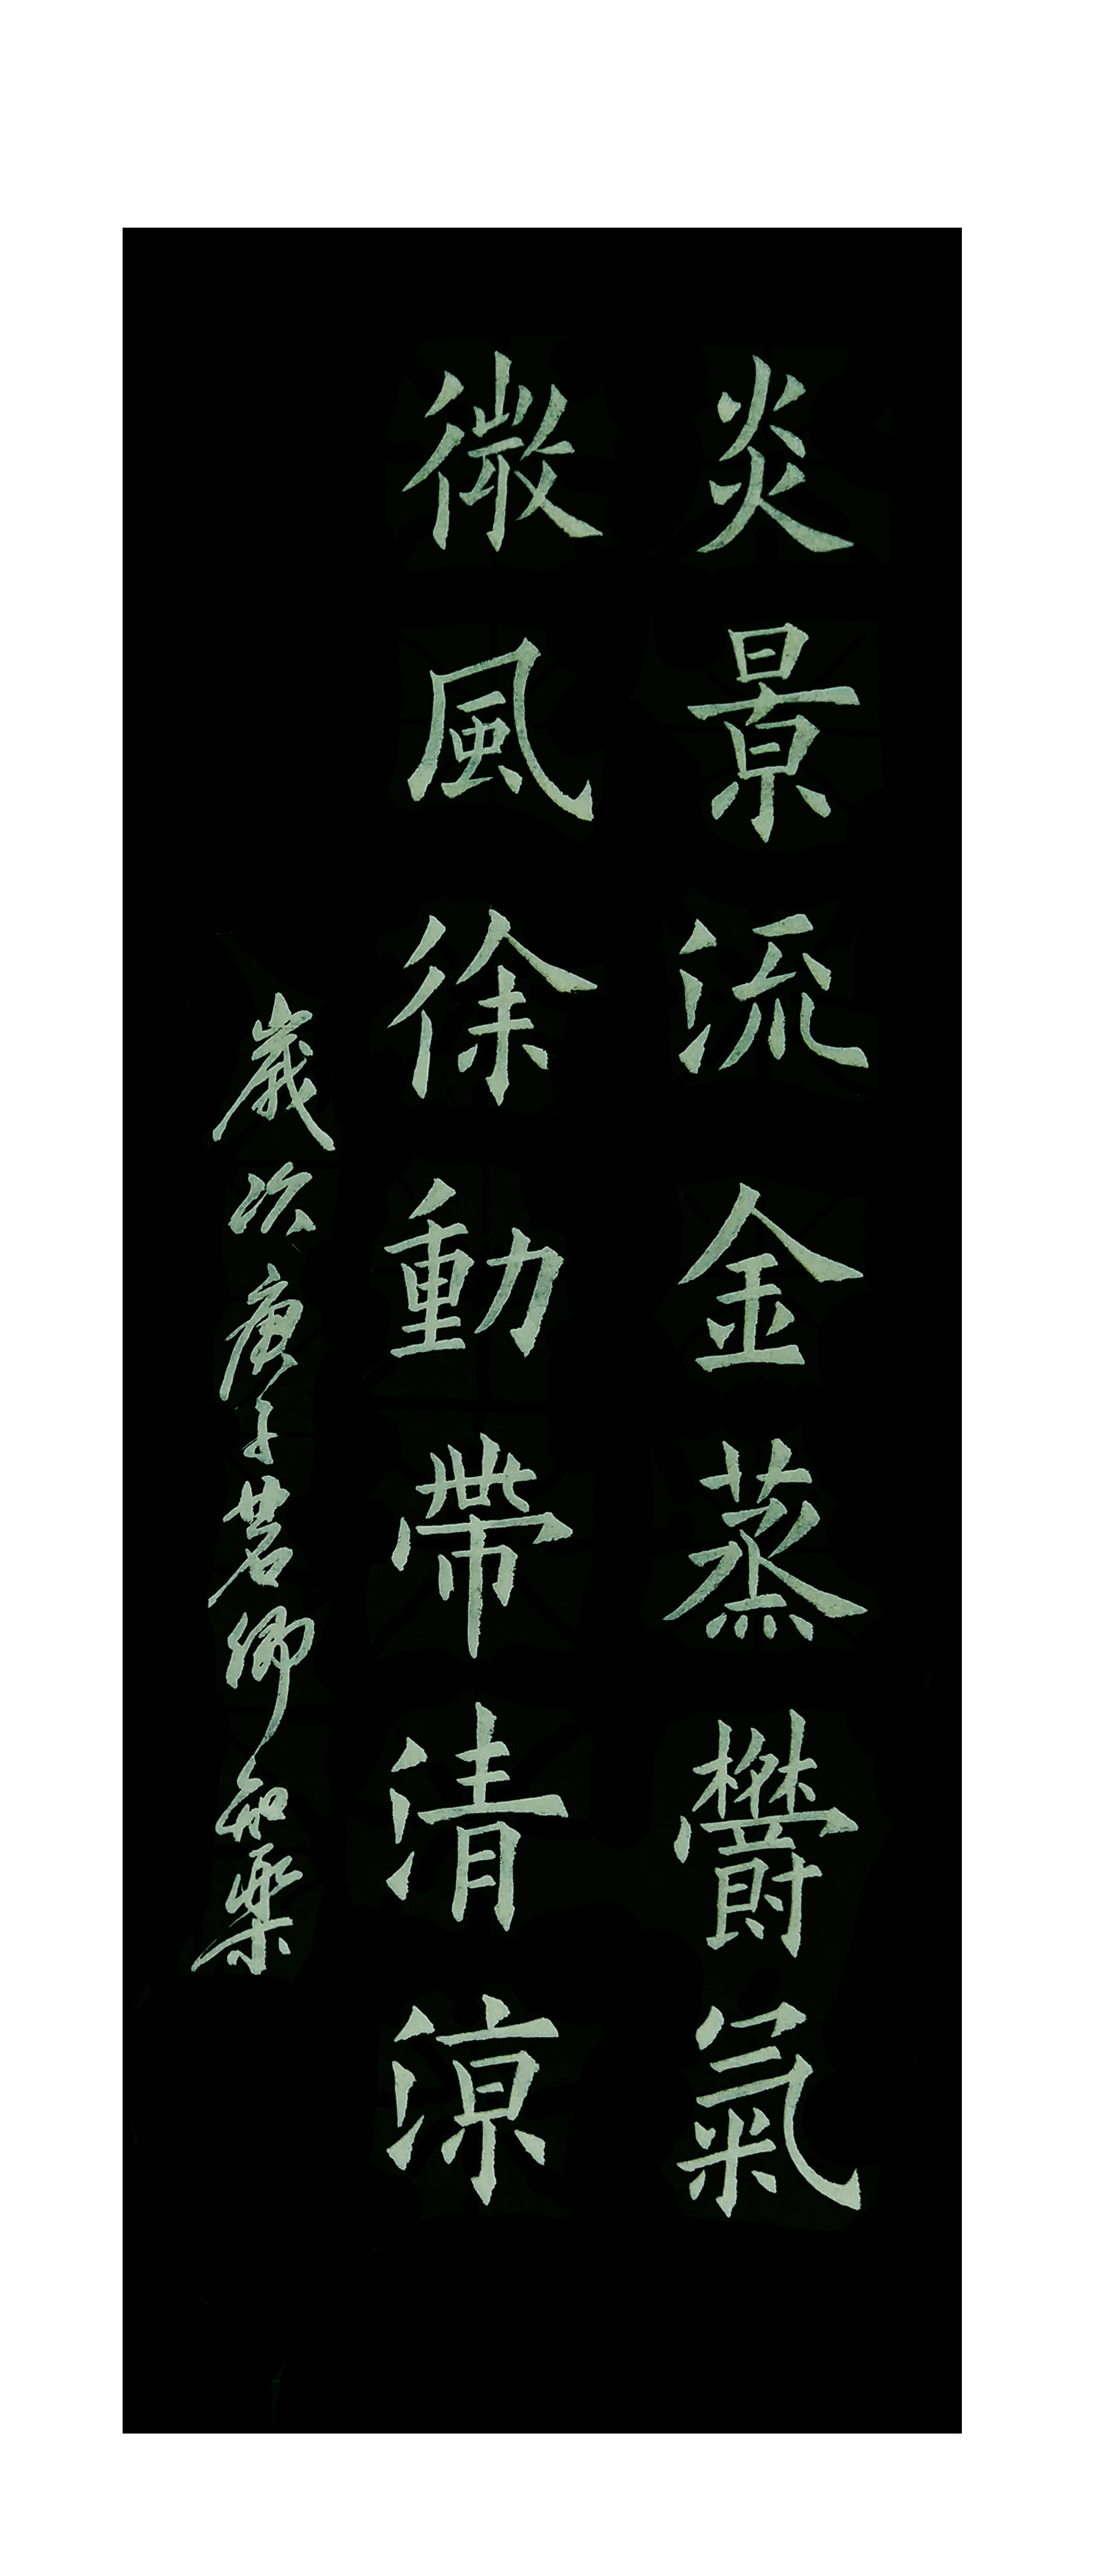 炎景流金蒸欝氣
微風徐動帶清涼
歲次庚子茗卿知樂